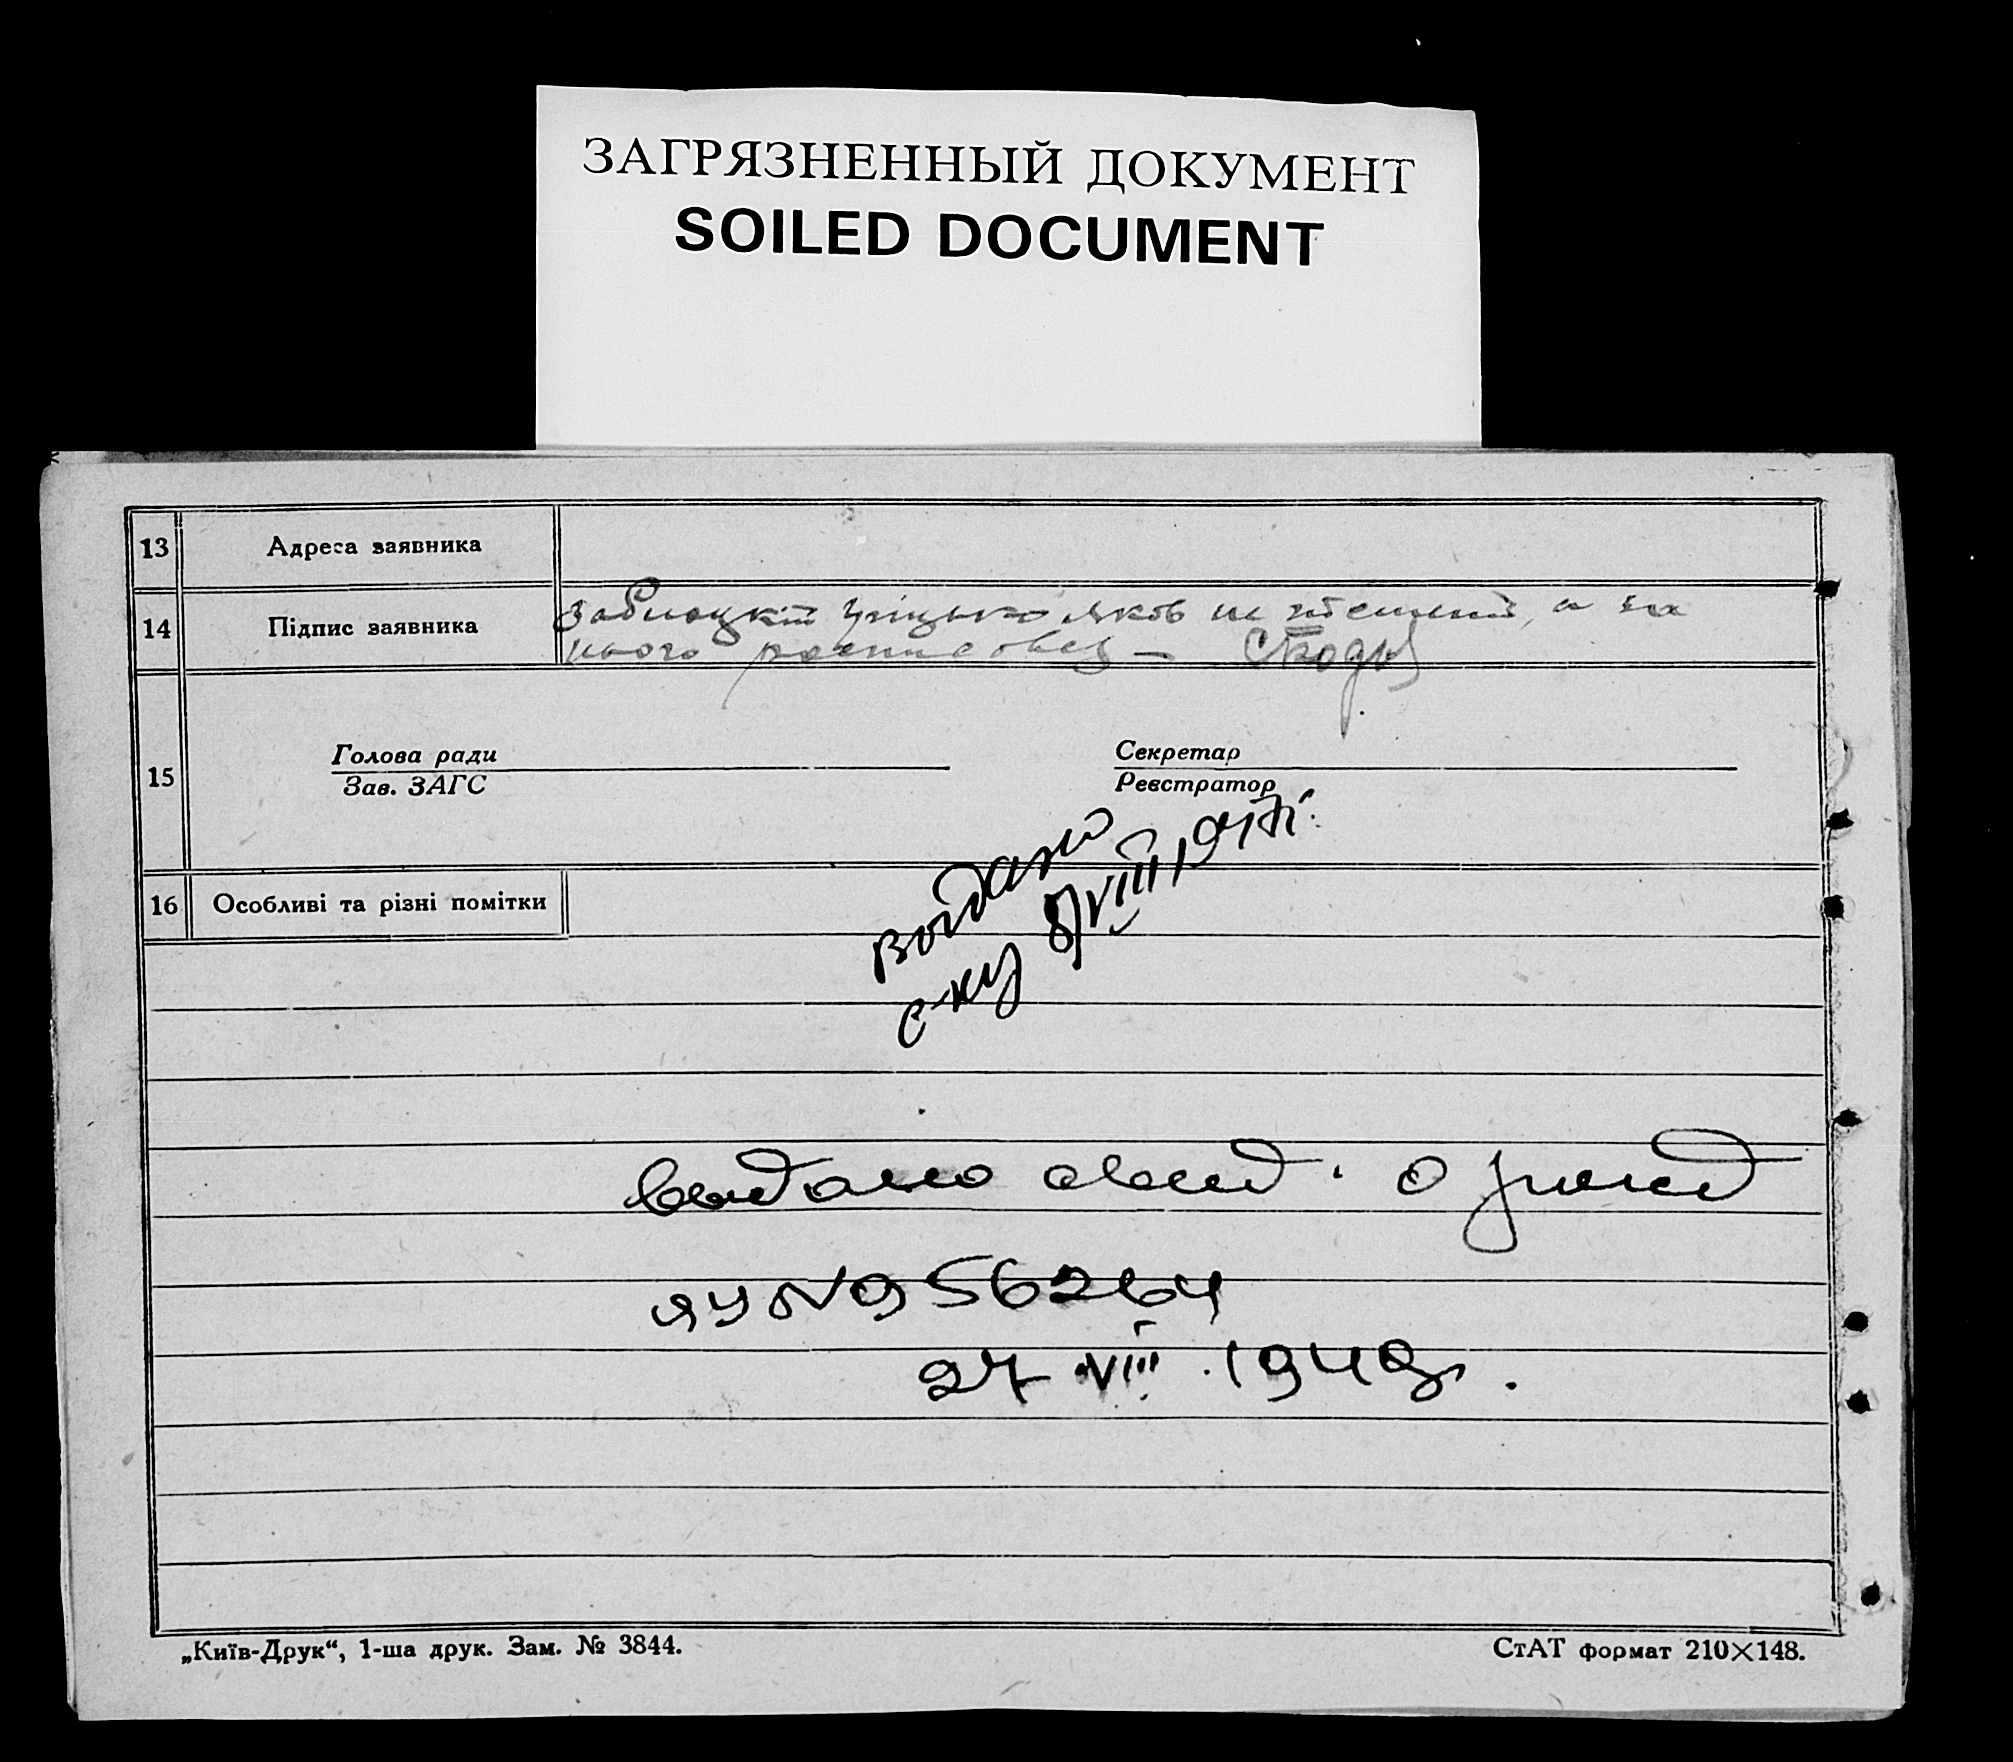 ЗАГРЯЗНЕННЫЙ ДОКУМЕНТ
SOILED DOCUMENT
13 Адреса заявника
14 Підпис заявника
а за
нього
15
Голова ради
Зав. ЗАГС
Секретар
Реєстратор
16 Особливі та різні помітки
видано
8/VIII 1947г.
выдано свид. о рожд
ЯУ № 956264
27 VIII 1948г.
„Київ-Друк“, 1-ша друк. Зам. № 3844.
СтАТ формат 210×148.